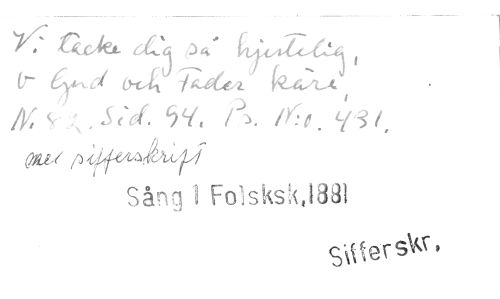 Vi tacke dig så hjertelig,
O Gud och Fader käre,
N. 82. Sid. 94. Ps. N:o. 431.
med sifferskrift
Sång I Folsksk,1881
Sifferskr,